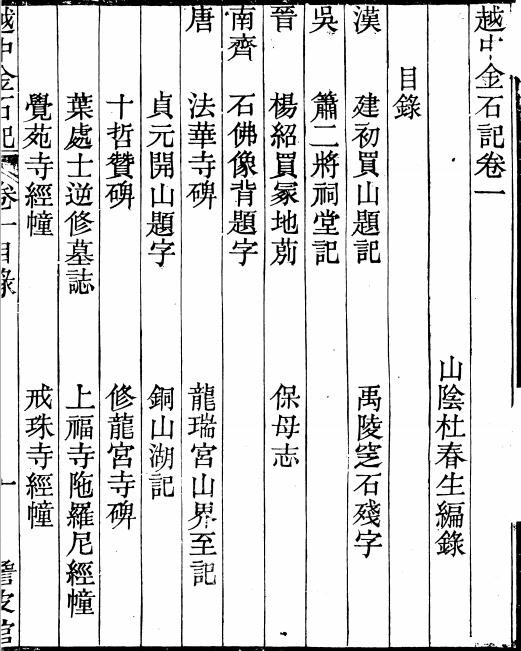 越中金石記卷一
山陰杜春生編錄
目錄
漢
建初買山題記 禹陵窆石殘字
吳
蕭二將祠堂記
晉
楊紹買冢地莂 保母志
南齊
石佛像背題字
唐
法華寺碑 龍瑞宮山界至記
貞元開山題字 銅山湖記
十哲贊碑 修龍宮寺碑
葉處士逆修墓誌 上福寺陁羅尼經幢
覺苑寺經幢 戒珠寺經幢
越中金石記 卷一目錄 一